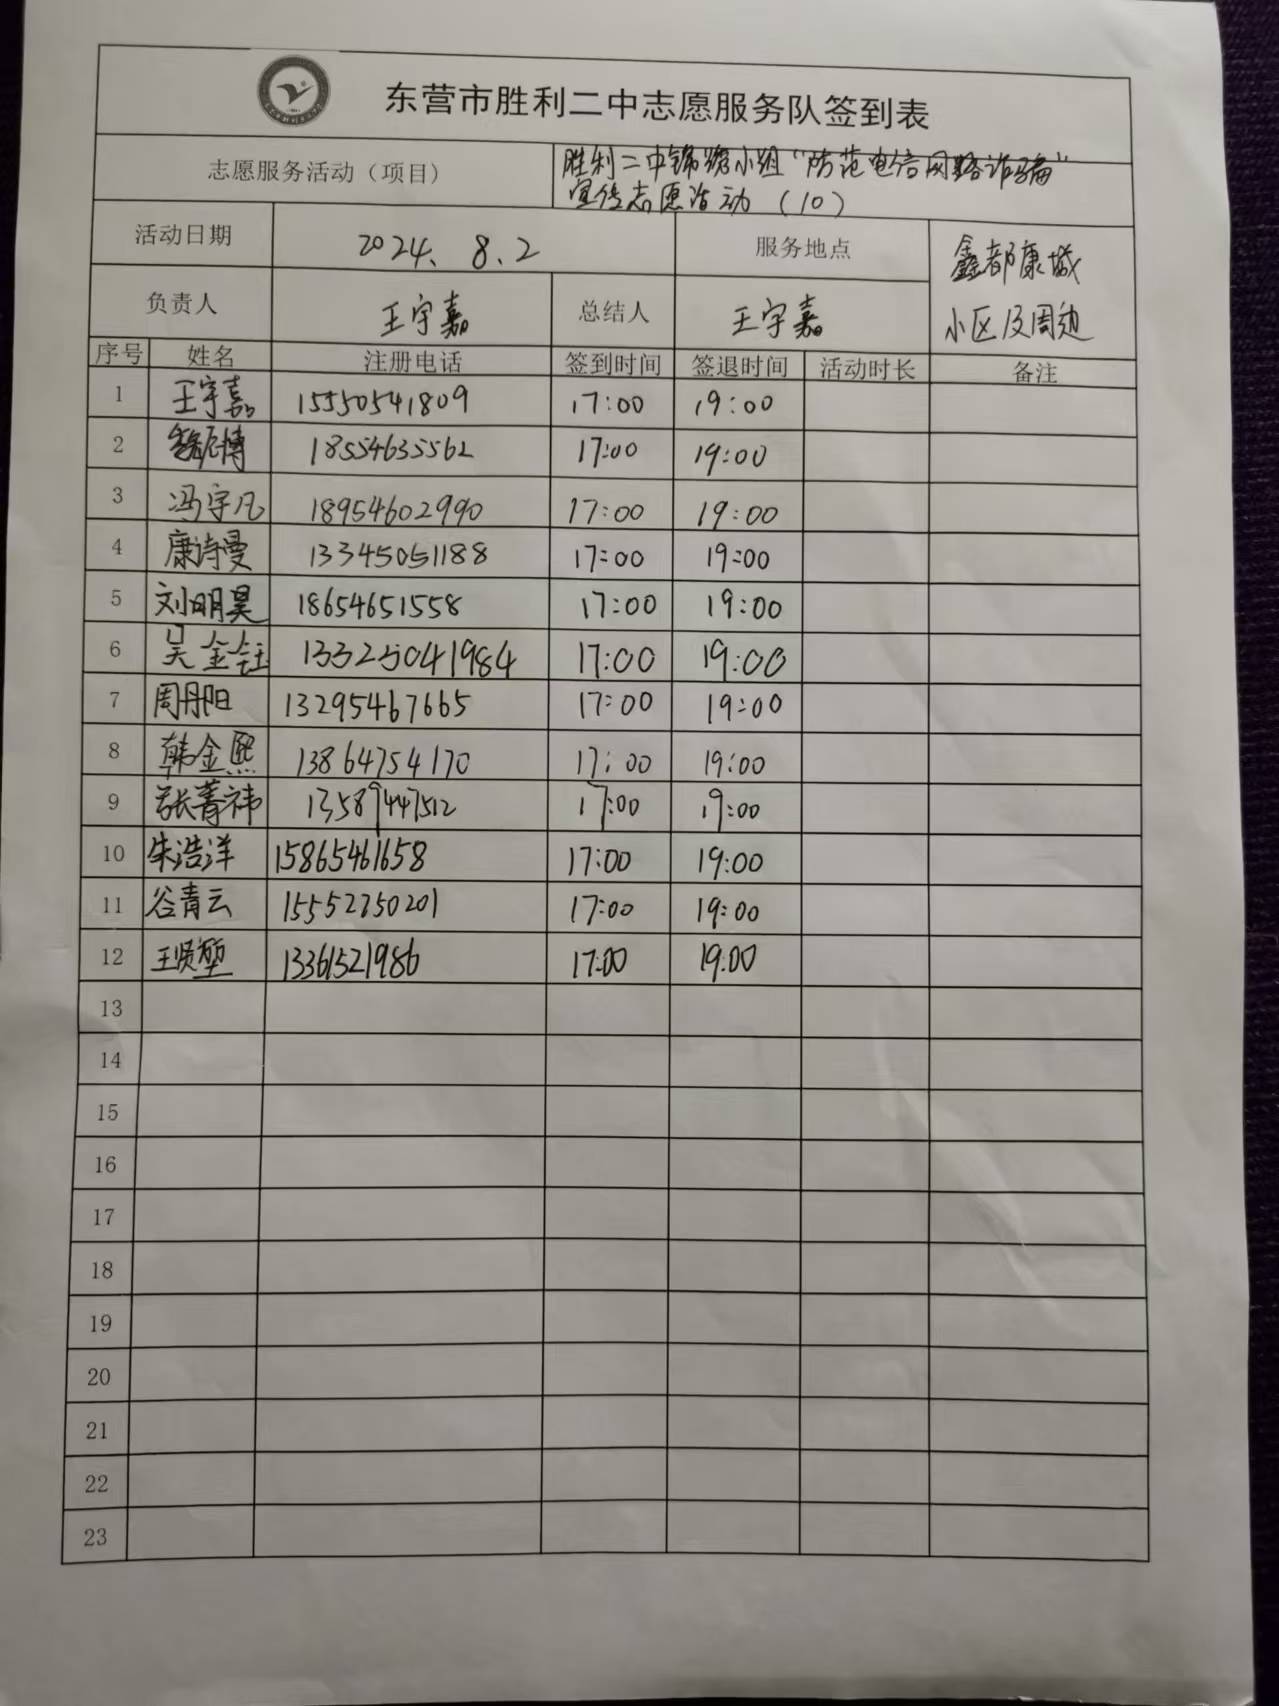 东营市胜利二中志愿服务队签到表
志愿服务活动（项目） 胜利二中锦鲤小组“防范电信网络诈骗”
宣传志愿活动（10）
活动日期 2024、8、2 服务地点 鑫都康城
小区及周边
负责人 王宇嘉 总结人 王宇嘉
序号 姓名 注册电话 签到时间 签退时间 活动时长 备注
1 王宇嘉 15550541809 17:00 19:00
2 18554635562 17:00 19:00
3 冯宇凡 18954602990 17:00 19:00
4 康诗曼 13345051188 17:00 19:00
5 刘明昊 18654651558 17:00 19:00
6 吴金钰 13325041984 17:00 19:00
7 周丹阳 13295467665 17:00 19:00
8 韩金熙 13864754170 17:00 19:00
9 张菁祎 13589447512 17:00 19:00
10 朱浩洋 15865461658 17:00 19:00
11 谷青云 15552750201 17:00 19:00
12 王贤堃 13361521986 17:00 19:00
13
14
15
16
17
18
19
20
21
22
23